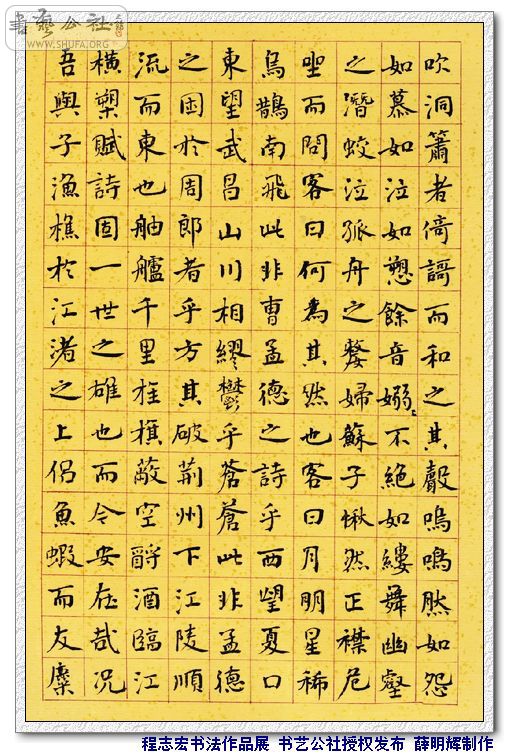 書藝公社
WWW.SHUFA.ORG
吹洞簫者倚謌而和之其聲嗚嗚然如怨
如慕如泣如愬餘音嫋〻不絕如縷舞幽壑
之潛蛟泣孤舟之嫠婦蘇子愀然正襟危
坐而問客曰何為其然也客曰月明星稀
烏鵲南飛此非曹孟德之詩乎西望夏口
東望武昌山川相繆鬱乎蒼蒼此非孟德
之困於周郎者乎方其破荊州下江陵順
流而東也舳艫千里旌旗蔽空釃酒臨江
橫槊賦詩固一世之雄也而今安在哉况
吾與子漁樵於江渚之上侶魚蝦而友麋
程志宏书法作品展 书艺公社授权发布 薛明辉制作